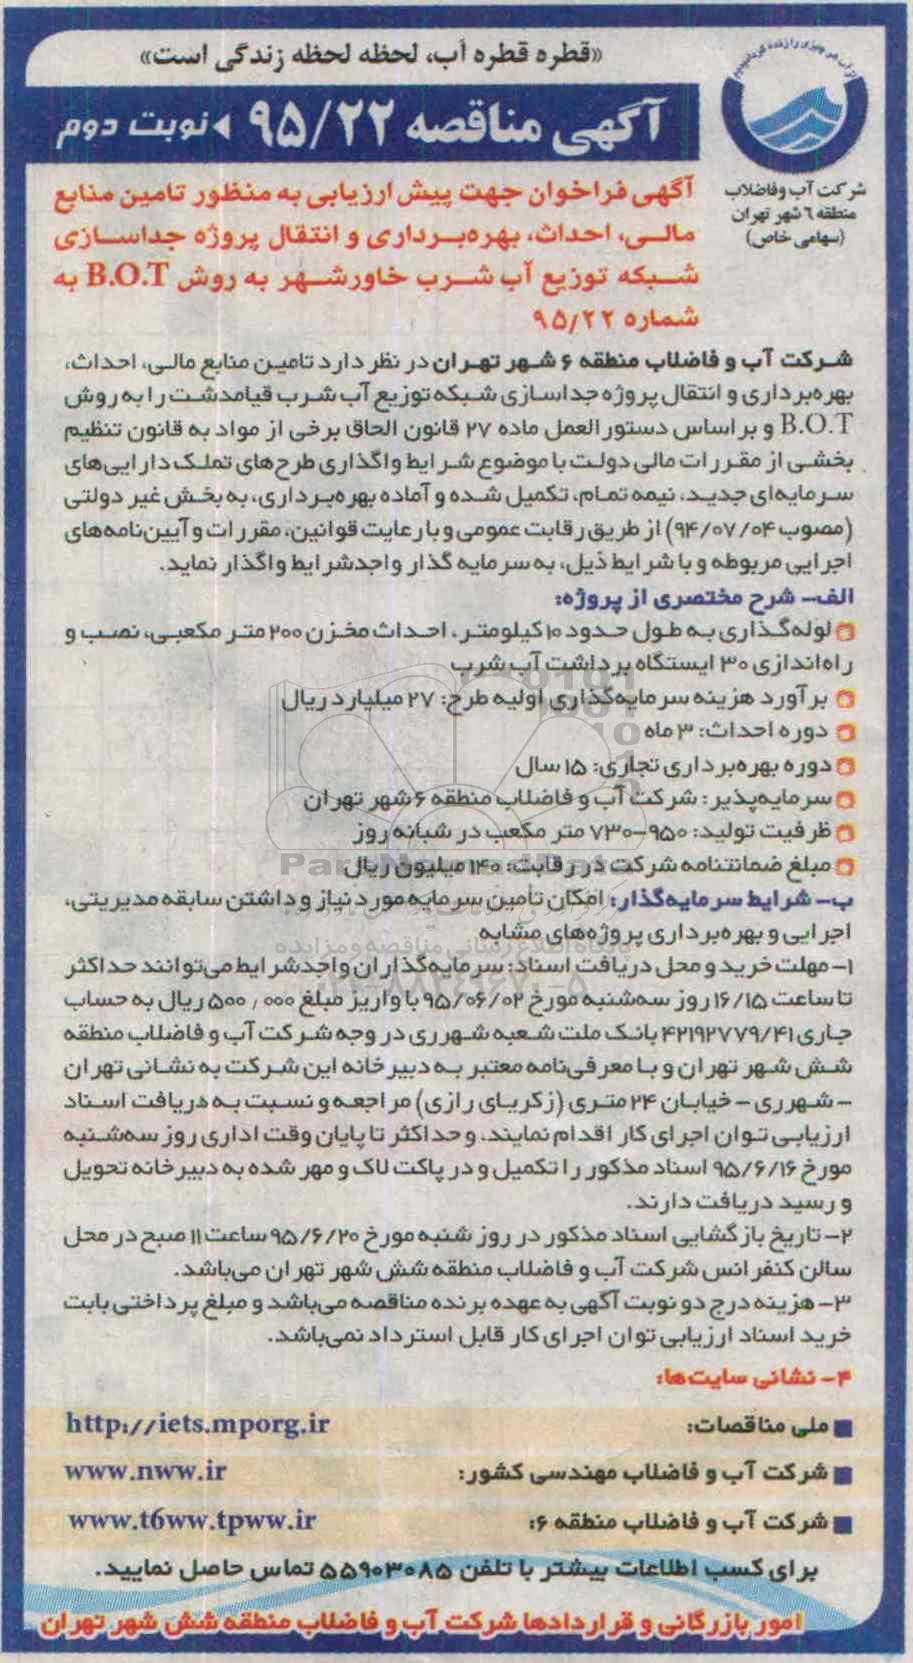 «قطره قطره آب، لحظه لحظه زندگی است»
آگهی مناقصه ۹۵/۲۲ ◂ نوبت دوم
شرکت آب و فاضلاب
منطقه ۶ شهر تهران
(سهامی خاص)
آگهی فراخوان جهت پیش ارزیابی به منظور تامین منابع
مالی، احداث، بهره‌برداری و انتقال پروژه جداسازی
شبکه توزیع آب شرب خاورشهر به روش B.O.T به
شماره ۹۵/۲۲
شرکت آب و فاضلاب منطقه ۶ شهر تهران در نظر دارد تامین منابع مالی، احداث،
بهره‌برداری و انتقال پروژه جداسازی شبکه توزیع آب شرب قیامدشت را به روش
B.O.T و بر اساس دستورالعمل ماده ۲۷ قانون الحاق برخی از مواد به قانون تنظیم
بخشی از مقررات مالی دولت با موضوع شرایط واگذاری طرح‌های تملک دارایی‌های
سرمایه‌ای جدید، نیمه تمام، تکمیل شده و آماده بهره‌برداری، به بخش غیر دولتی
(مصوب ۹۴/۰۷/۰۴) از طریق رقابت عمومی و با رعایت قوانین، مقررات و آیین‌نامه‌های
اجرایی مربوطه و با شرایط ذیل، به سرمایه گذار واجدشرایط واگذار نماید.
الف- شرح مختصری از پروژه:
لوله‌گذاری به طول حدود ۱۰ کیلومتر، احداث مخزن ۲۰۰ متر مکعبی، نصب و
راه‌اندازی ۳۰ ایستگاه برداشت آب شرب
برآورد هزینه سرمایه‌گذاری اولیه طرح: ۲۷ میلیارد ریال
دوره احداث: ۳ ماه
دوره بهره‌برداری تجاری: ۱۵ سال
سرمایه‌پذیر: شرکت آب و فاضلاب منطقه ۶ شهر تهران
ظرفیت تولید: ۹۵۰-۷۳۰ متر مکعب در شبانه روز
مبلغ ضمانتنامه شرکت در رقابت: ۱۴۰ میلیون ریال
ب- شرایط سرمایه‌گذار: امکان تأمین سرمایه مورد نیاز و داشتن سابقه مدیریتی،
اجرایی و بهره‌برداری پروژه‌های مشابه
۱- مهلت خرید و محل دریافت اسناد: سرمایه‌گذاران واجدشرایط می‌توانند حداکثر
تا ساعت ۱۶/۱۵ روز سه‌شنبه مورخ ۹۵/۰۶/۰۲ با واریز مبلغ ۵۰۰,۰۰۰ ریال به حساب
جاری ۴۲۱۹۲۷۷۹/۴۱ بانک ملت شعبه شهرری در وجه شرکت آب و فاضلاب منطقه
شش شهر تهران و با معرفی‌نامه معتبر به دبیرخانه این شرکت به نشانی تهران
- شهرری - خیابان ۲۴ متری (زکریای رازی) مراجعه و نسبت به دریافت اسناد
ارزیابی توان اجرای کار اقدام نمایند. و حداکثر تا پایان وقت اداری روز سه‌شنبه
مورخ ۹۵/۶/۱۶ اسناد مذکور را تکمیل و در پاکت لاک و مهر شده به دبیرخانه تحویل
و رسید دریافت دارند.
۲- تاریخ بازگشایی اسناد مذکور در روز شنبه مورخ ۹۵/۶/۲۰ ساعت ۱۱ صبح در محل
سالن کنفرانس شرکت آب و فاضلاب منطقه شش شهر تهران می‌باشد.
۳- هزینه درج دو نوبت آگهی به عهده برنده مناقصه می‌باشد و مبلغ پرداختی بابت
خرید اسناد ارزیابی توان اجرای کار قابل استرداد نمی‌باشد.
۴- نشانی سایت‌ها:
ملی مناقصات: http://iets.mporg.ir
شرکت آب و فاضلاب مهندسی کشور: www.nww.ir
شرکت آب و فاضلاب منطقه ۶: www.t6ww.tpww.ir
برای کسب اطلاعات بیشتر با تلفن ۵۵۹۰۳۰۸۵ تماس حاصل نمایید.
امور بازرگانی و قراردادها شرکت آب و فاضلاب منطقه شش شهر تهران